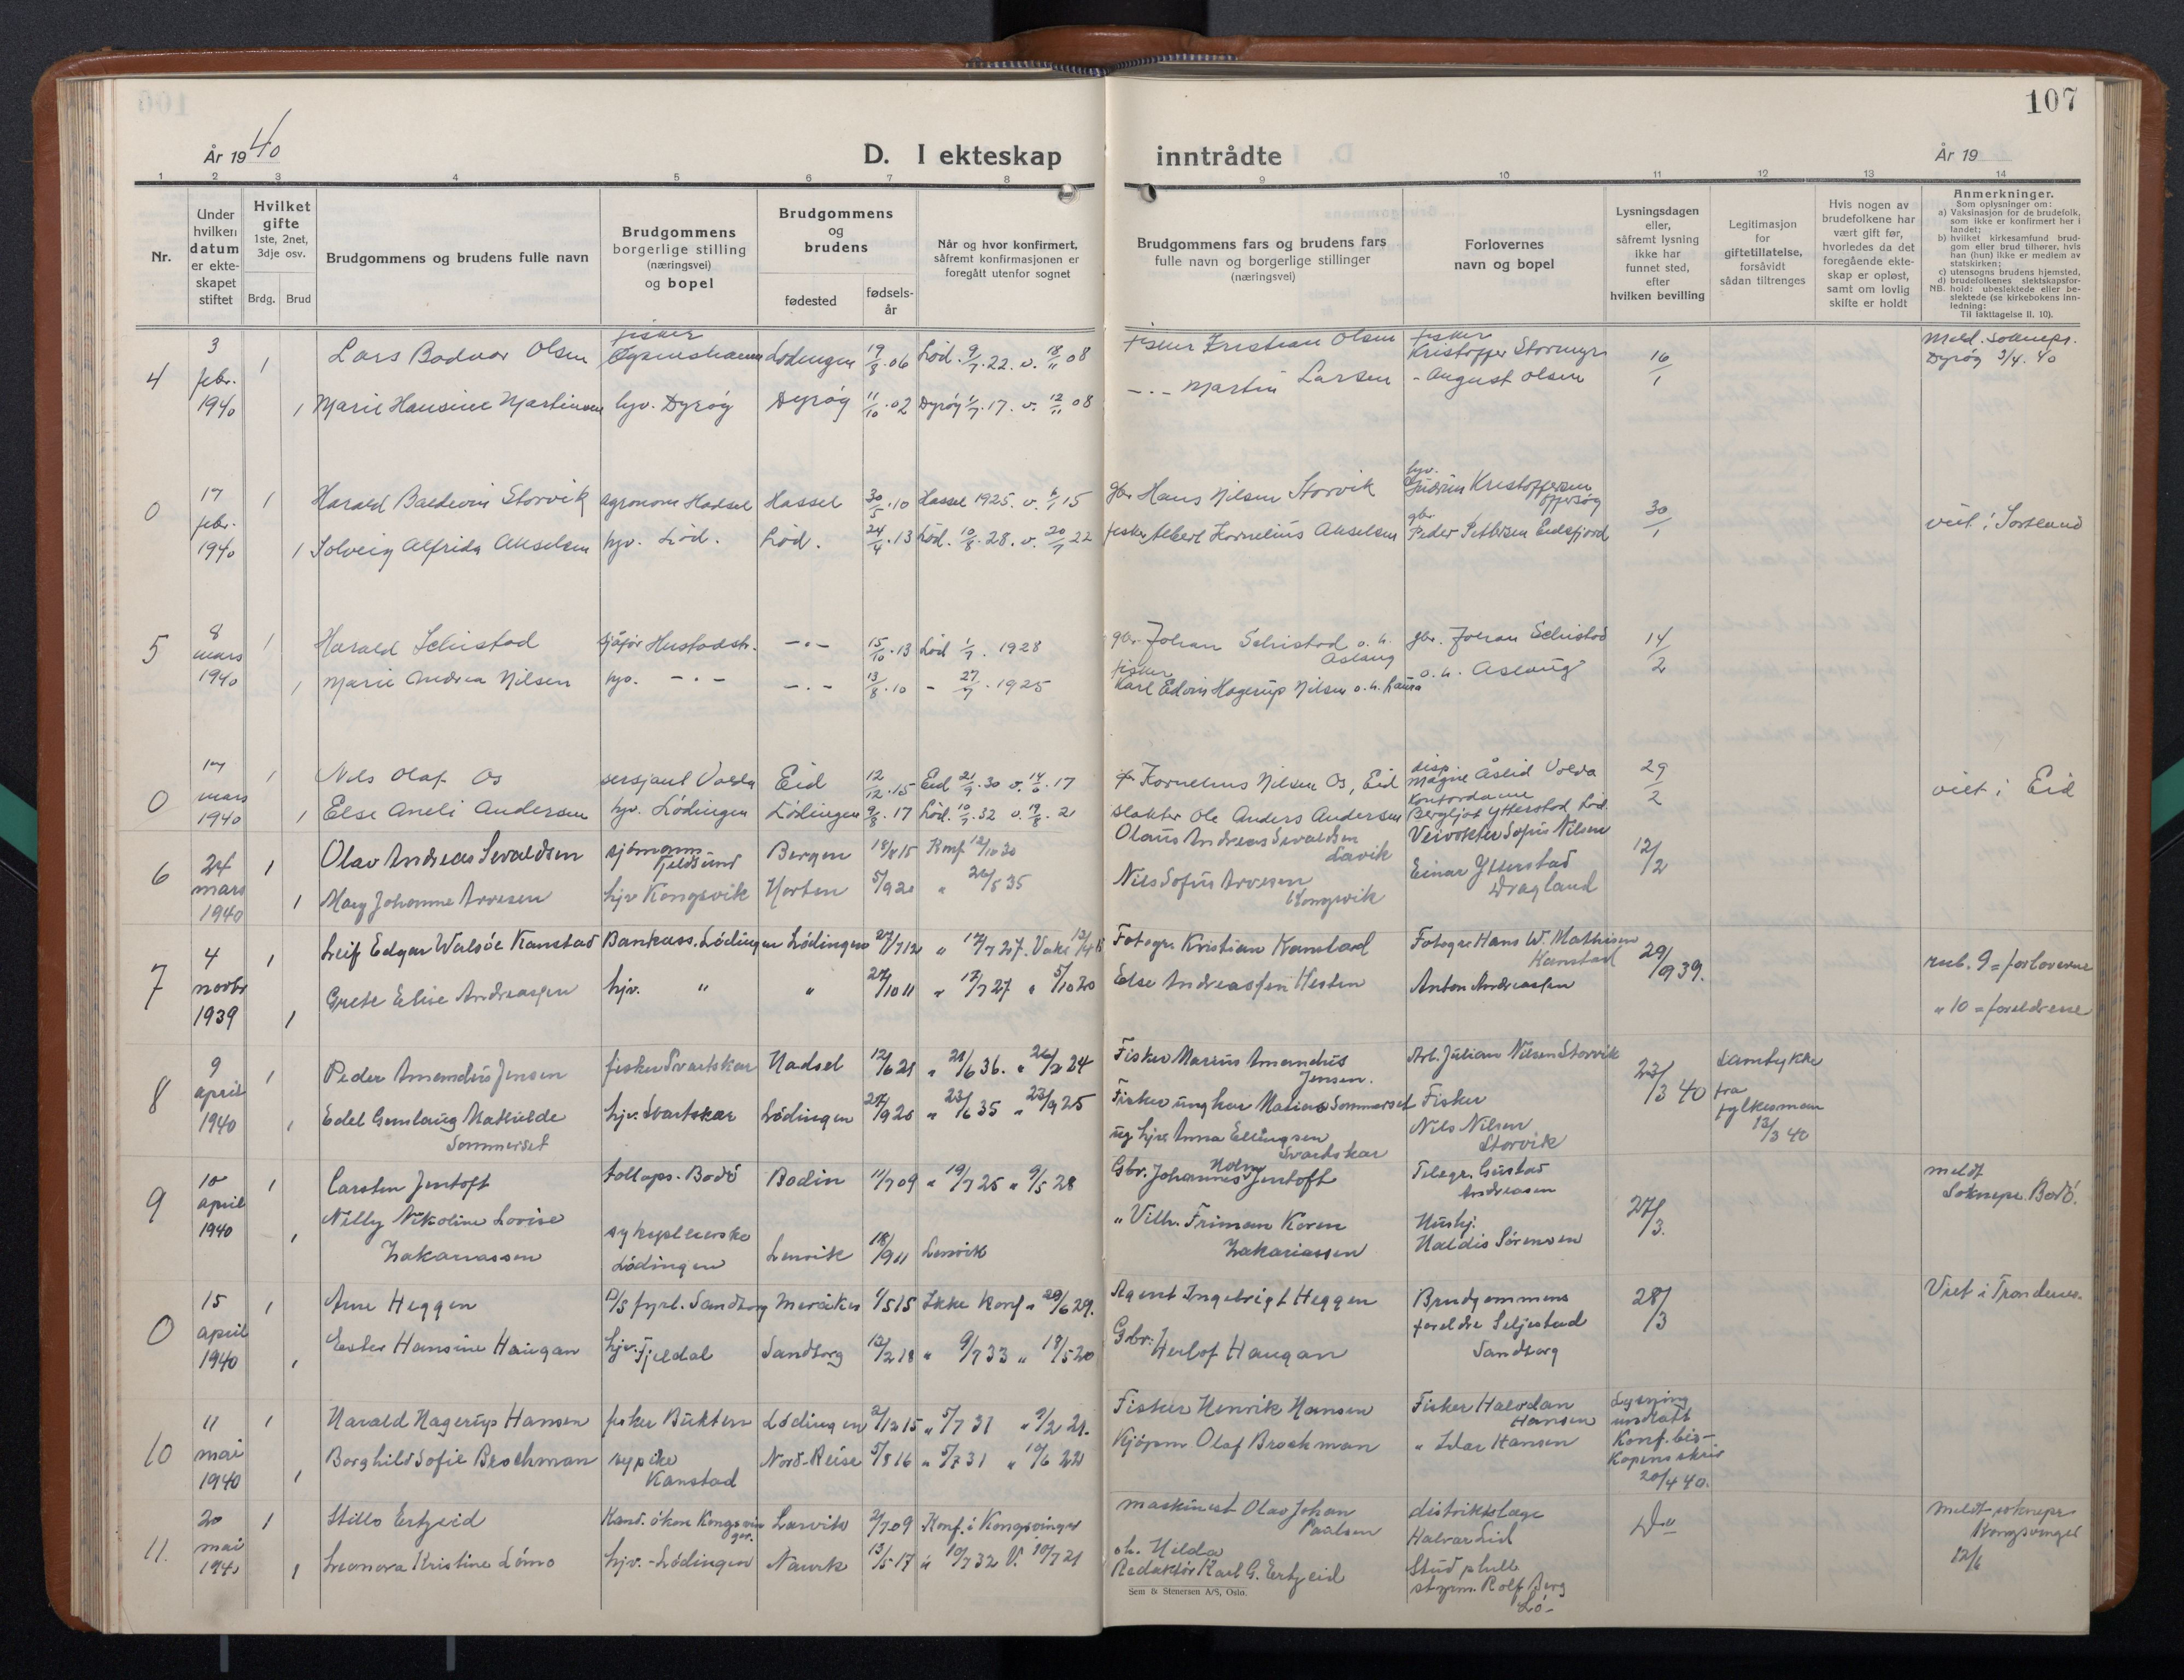 107
År 1940
D. I ekteskap inntrådte
År 19
1 2 3 4 5 6 7 8 9 10 11 12 13 14
Nr.
Under hvilken datum er ekteskapet stiftet
Hvilket gifte
1ste, 2net, 3dje osv.
Brdg. Brud
Brudgommens og brudens fulle navn
Brudgommens borgerlige stilling (næringsvei) og bopel
Brudgommens og brudens
fødested
fødselsår
Når og hvor konfirmert, såfremt konfirmasjonen er foregått utenfor sognet
Brudgommens fars og brudens fars fulle navn og borgerlige stillinger (næringsvei)
Forlovernes navn og bopel
Lysningsdagen eller, såfremt lysning ikke har funnet sted, efter hvilken bevilling
Legitimasjon for giftetillatelse, forsåvidt sådan tiltrenges
Hvis nogen av brudefolkene har vært gift før, hvorledes da det foregående ekteskap er opløst, samt om lovlig skifte er holdt
Anmerkninger.
Som oplysninger om:
a) Vaksinasjon for de brudefolk, som ikke er konfirmert her i landet;
b) hvilket kirkesamfund brudgom eller brud tilhører, hvis han (hun) ikke er medlem av statskirken;
c) utensogns brudens hjemsted,
d) brudefolkenes slektskapsforhold: ubeslektede eller beslektede (se kirkebokens innledning:
NB. Til iakttagelse II. 10).
4 3 febr. 1940 1 Lars Bodvar Olsen fisker Lødingen 19/8.06 Lød. 9/7.22. v. 18/11 08 fisker Kristian Olsen fisker Kristoffer Stormyr 16/1 Meld. soknepr. Dyrøy 3/4.40
1 Marie Hansine Martinsen hjv. Dyrøy Dyrøy 11/10.02 Dyrøy 1/7.17. v. 12/11 08 -"- Martin Larsen - August Olsen
0 17 febr. 1940 1 Harald Baldevin Storvik agronom Hadsel Hassel 30/5.10 Hassel 1925. v. 15 gbr Hans Nilsen Storvik hjv. Gudrun Kristoffersen 30/1 viet i Sortland
1 Solveig Alfrida Akselsen hjv. Lød. Lød. 24/4.13 Lød. 10/8.28. v. 20/7 22 fisker Albert Kornelius Akselsen gbr. Peder Pettersen Eidsfjord
5 8 mars 1940 1 Harald Schistad sjåfør -"- 15/10.13 Lød 1/7. 1928 gbr. Johan Schistad o. h. Aslaug gbr. Johan Schistad 14/2
1 Marie Andrea Nilsen hjv. -"- -"- 13/8.10 - 27/7.1925 fisker Karl Edvin Hagerup Nilsen o.h. Laura o.h. Aslaug
0 17 mars 1940 1 Nils Olaf Os sersjant Volda Eid 12/12.15 Eid 21/9.30 v. 17 Kornelius Nilsen Os, Eid disp. Magne Åslid Volda 29/2 viet i Eid
1 Else Aneli Andersen hjv. Lødingen Lødingen 9/8.17 Lød. 10/7.32 v. 19/8.21 slakter Ole Anders Andersen Kontordame Bergljot Ytterstad Lød.
6 24 mars 1940 1 Olav Andreas Sevaldsen sjømann Tjeldsund Bergen 18/8 15 Konf 12/10 30 Olaus Andreas Sevaldsen Lavik Sofus Nilsen 12/2
1 Mary Johanne Arvesen hjv Kongsvik Horten 5/9 20 " 26/5 35 Nils Sofus Arvesen Kongsvik Einar Ytterstad Dragland
7 4 novbr 1939 1 Leif Edgar Walsøe Kanstad Bankass. Lødingen Lødingen 27/7 12 " 17/7 27. Fotogr. Kristian Kanstad Fotogr Hans W. Mathisen Kanstad 29/9 39. rub. 9 = forloverne
1 Grete Elise Andreassen hjv. " " 27/10 11 " 17/7 27 " 5/10 20 Else Andreassen Hesten Anton Andreassen " 10 = foreldrene
8 9 april 1940 1 Peder Amandus Jensen fisker Svartskar Hadsel 12/6 21 " 21/6 36. " 26/2 24 Fisker Marius Amandus Jensen. Arb. Julian Nilsen Storvik 23/3 40 Samtykke fra fylkesmann 13/3 40
1 Edel Gunlaug Mathilde Sommerset hjv. Svartskar Lødingen 27/9 20 " 23/6 35 " 23/9 25 Fisker ungkar Mathias Sommerset Fisker Nils Nilsen Storvik
ug hjv Anna Ellingsen Svartskar
9 10 april 1940 1 Carsten Jentoft tollops. Bodø Bodin 11/7 09 " 19/7 25 " 9/5 28 Gbr. Johannes Holm Jentoft Telegr. Gustav Andreasen 27/3. meldt Soknepr. Bodø.
1 Nelly Nikoline Lovise Zakariassen sykepleierske Lødingen Lenvik 18/9 11 Lenvik " Vilh. Friman Koren Zakariassen Hushj. Haldis Sørensen
0 15 april 1940 1 Arne Heggen D/S fyrb. Sandtorg Meråker 1/5 15 Ikke Konf " 20/6 29. Agent Ingebrigt Heggen Brudgommens foreldre Seljestad Sandtorg 28/3 Viet i Trondenes.
1 Ester Hansine Haugan hjv. Fjeldal Sandtorg 12/2 18 " 9/7 33 " 18/5 20 Gbr. Herlof Haugan
10 11 mai 1940 1 Harald Hagerup Hansen fisker Bukten Lødingen 2/12 15 " 5/7 31 " 9/2 21. Fisker Henrik Hansen Fisker Halvdan Hansen Lysning unnlatt Konf. biskopens skriv 20/4 40.
1 Borghild Sofie Brochman sypike Kanstad Nord-Reisa 5/8 16 " 5/7 31 " 12/6 22 Kjøpm Olaf Brochman " Ildar Hansen
11. 20 mai 1940 1 Stills Ertzeid Kand. økon Kongsvinger. Larvik 2/7 09 Konf. i Kongsvinger maskinist Olav Johan Paalsen distriktslæge Halvar Lid Do meldt soknepr Kongsvinger 12/6
1 Leonora Kristine Lømo hjv. - Lødingen Narvik 13/5 17 " 10/7 32 V. 10/7 21 oh. Hilda Redaktør Karl G. Ertzeid Stud philol styrm. Rolf Berg Lø-
Sem & Stenersen A/S, Oslo.